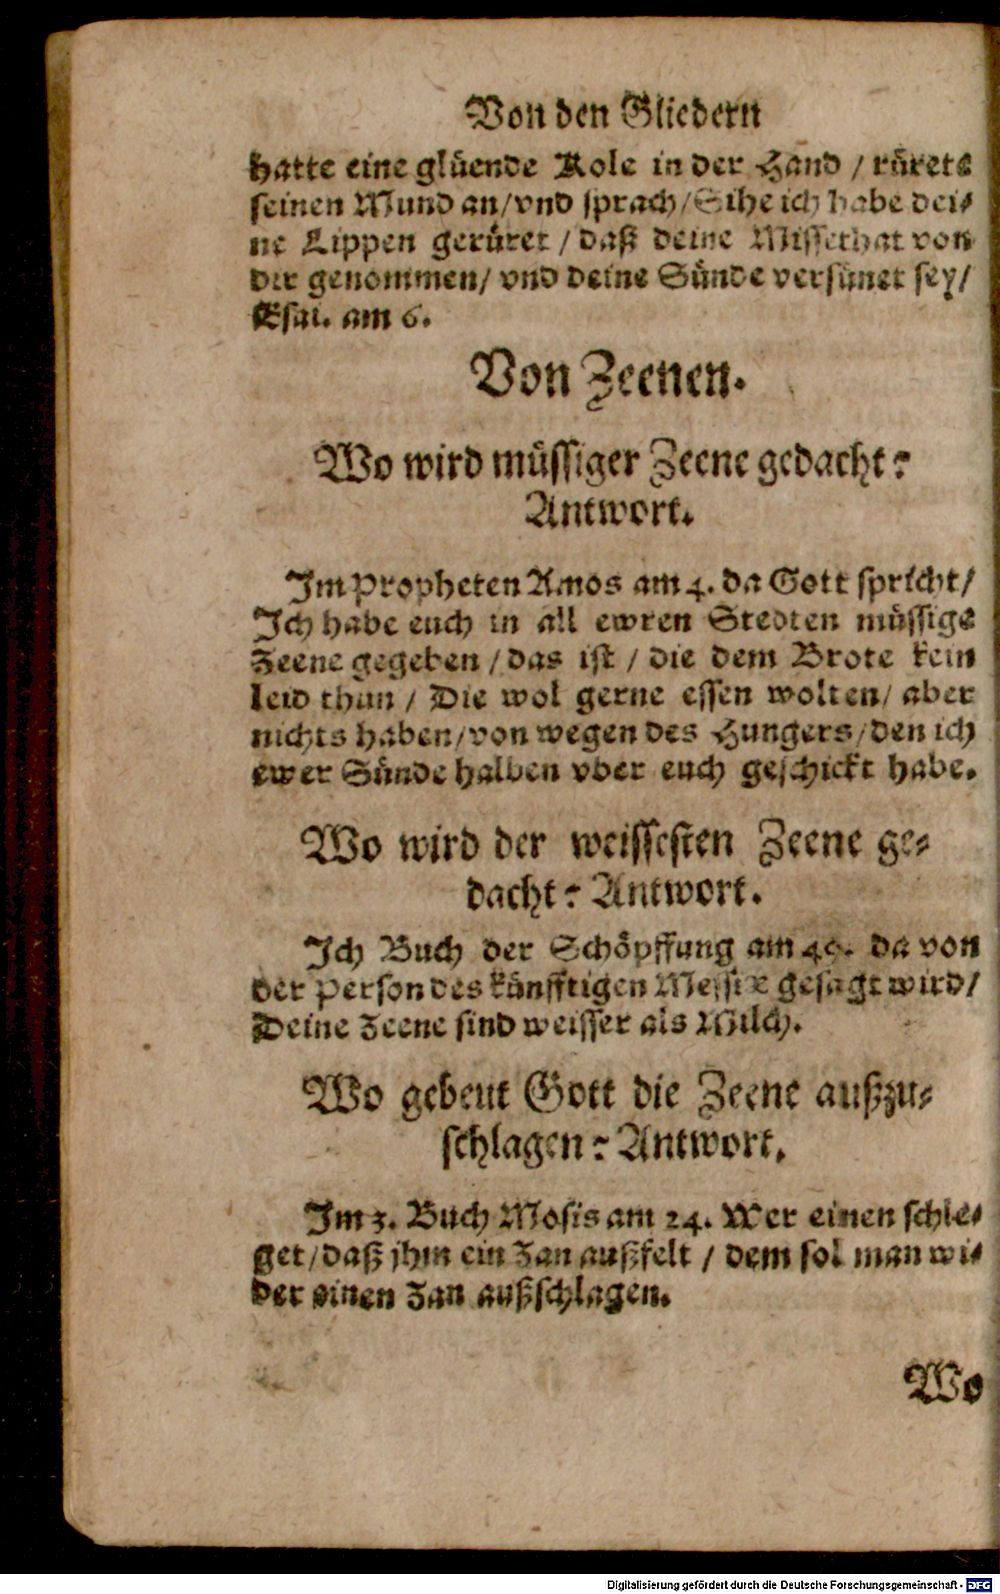 Von den Gliedern
hatte eine glüende Kole in der Hand / rürets
seinen Mund an/vnd sprach/Sihe ich habe dei-
ne Lippen gerüret / daß deine Missethat von
dir genommen/ vnd deine Sünde versünet sey/
Esai. am 6.
Von Zeenen.
Wo wird müssiger Zeene gedacht?
Antwort.
Im Propheten Amos am 4. da Gott spricht/
Ich habe euch in all ewren Stedten müssige
Zeene gegeben / das ist / die dem Brote kein
leid thun / Die wol gerne essen wolten/ aber
nichts haben/von wegen des Hungers/den ich
ewer Sünde halben vber euch geschickt habe.
Wo wird der weissesten Zeene ge-
dacht? Antwort.
Ich Buch der Schöpffung am 49. da von
der Person des künfftigen Messiæ gesagt wird/
Deine Zeene sind weisser als Milch.
Wo gebeut Gott die Zeene außzu-
schlagen? Antwort.
Im 3. Buch Mosis am 24. Wer einen schle-
get/daß jhm ein Zan außfelt / dem sol man wi-
der einen Zan außschlagen.
Wo
Digitalisierung gefördert durch die Deutsche Forschungsgemeinschaft - DFG